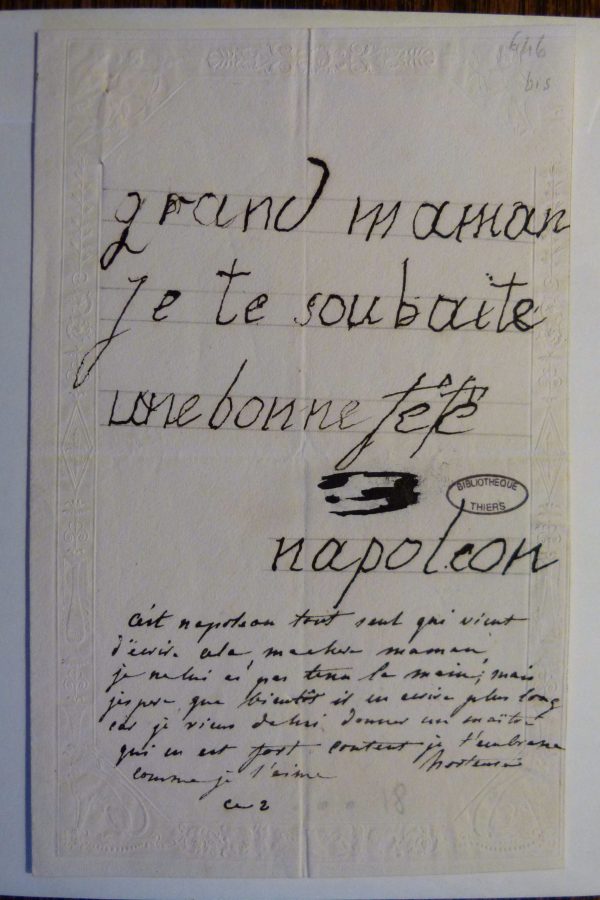 646
bis
grand maman
je te souhaite
une bonne fête
BIBLIOTHEQUE
THIERS
napoleon
c'est napoleon tout seul qui vient
d'ecrire cela ma chere maman
je ne lui ai pas tenu la main, mais
j'espere que bientôt il en ecrira plus long
car je viens de lui donner un maitre
qui en est fort content je t'embrasse
comme je t'aime hortense
ce 2